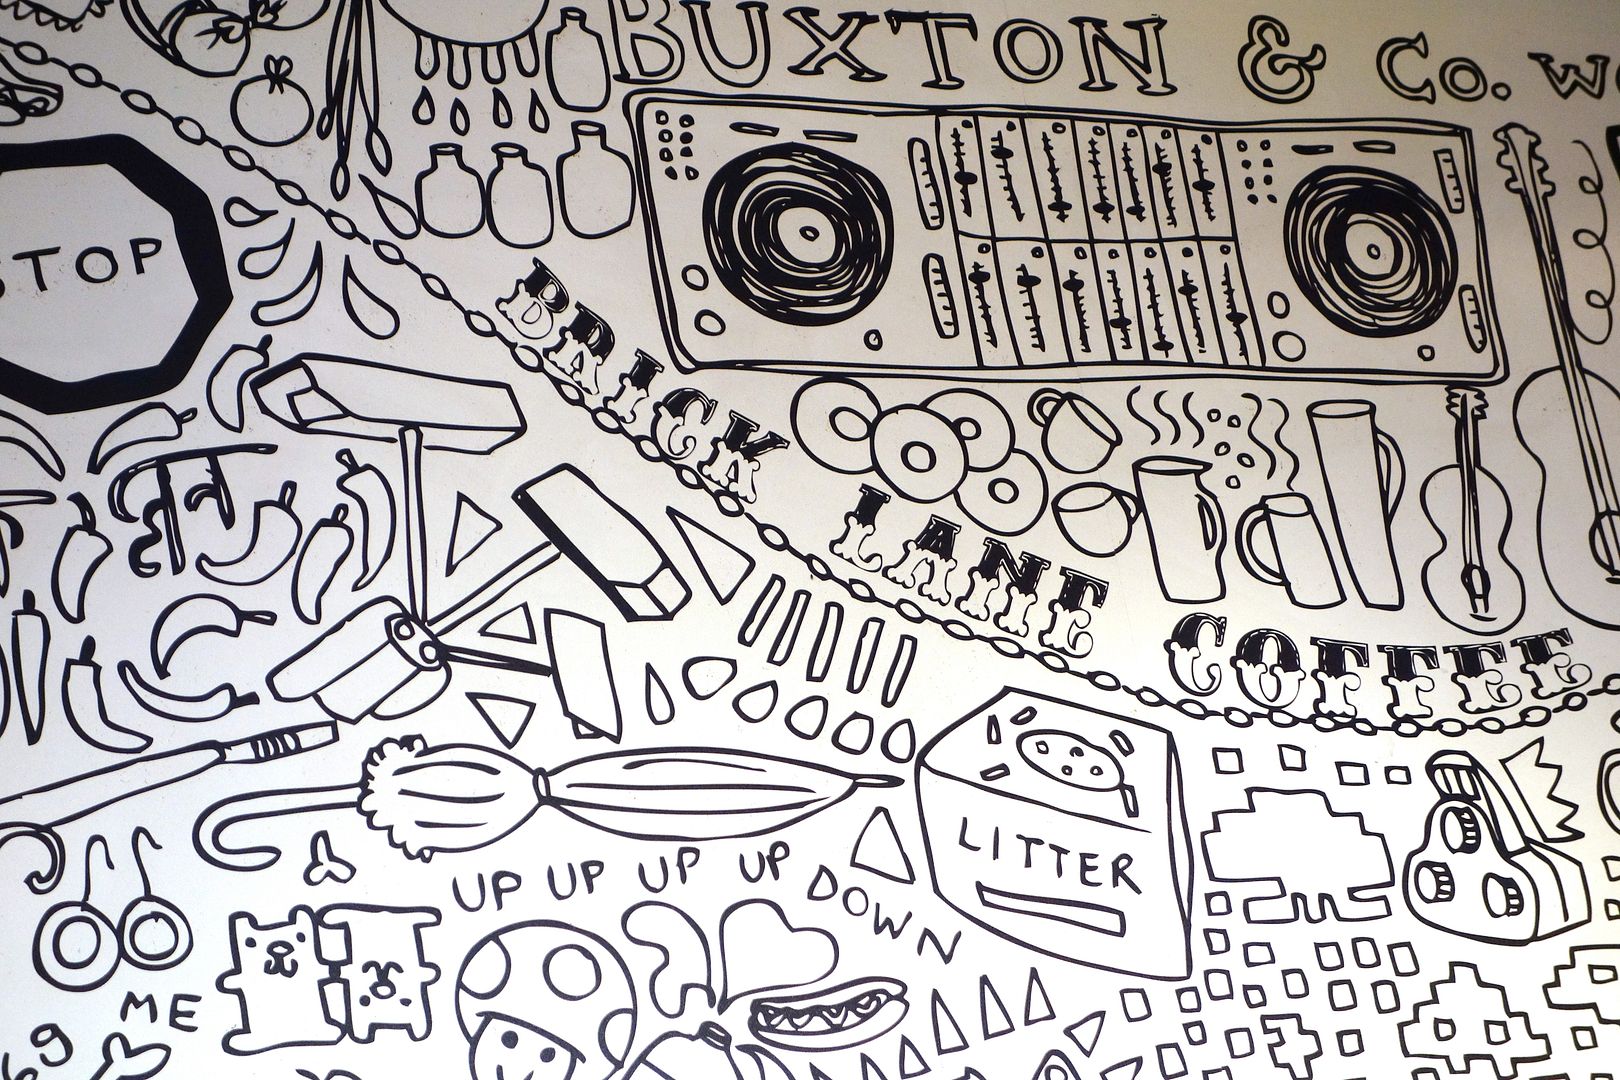 BUXTON & Co.
STOP
BRICK LANE COFFEE
LITTER
UP UP UP UP DOWN
ME